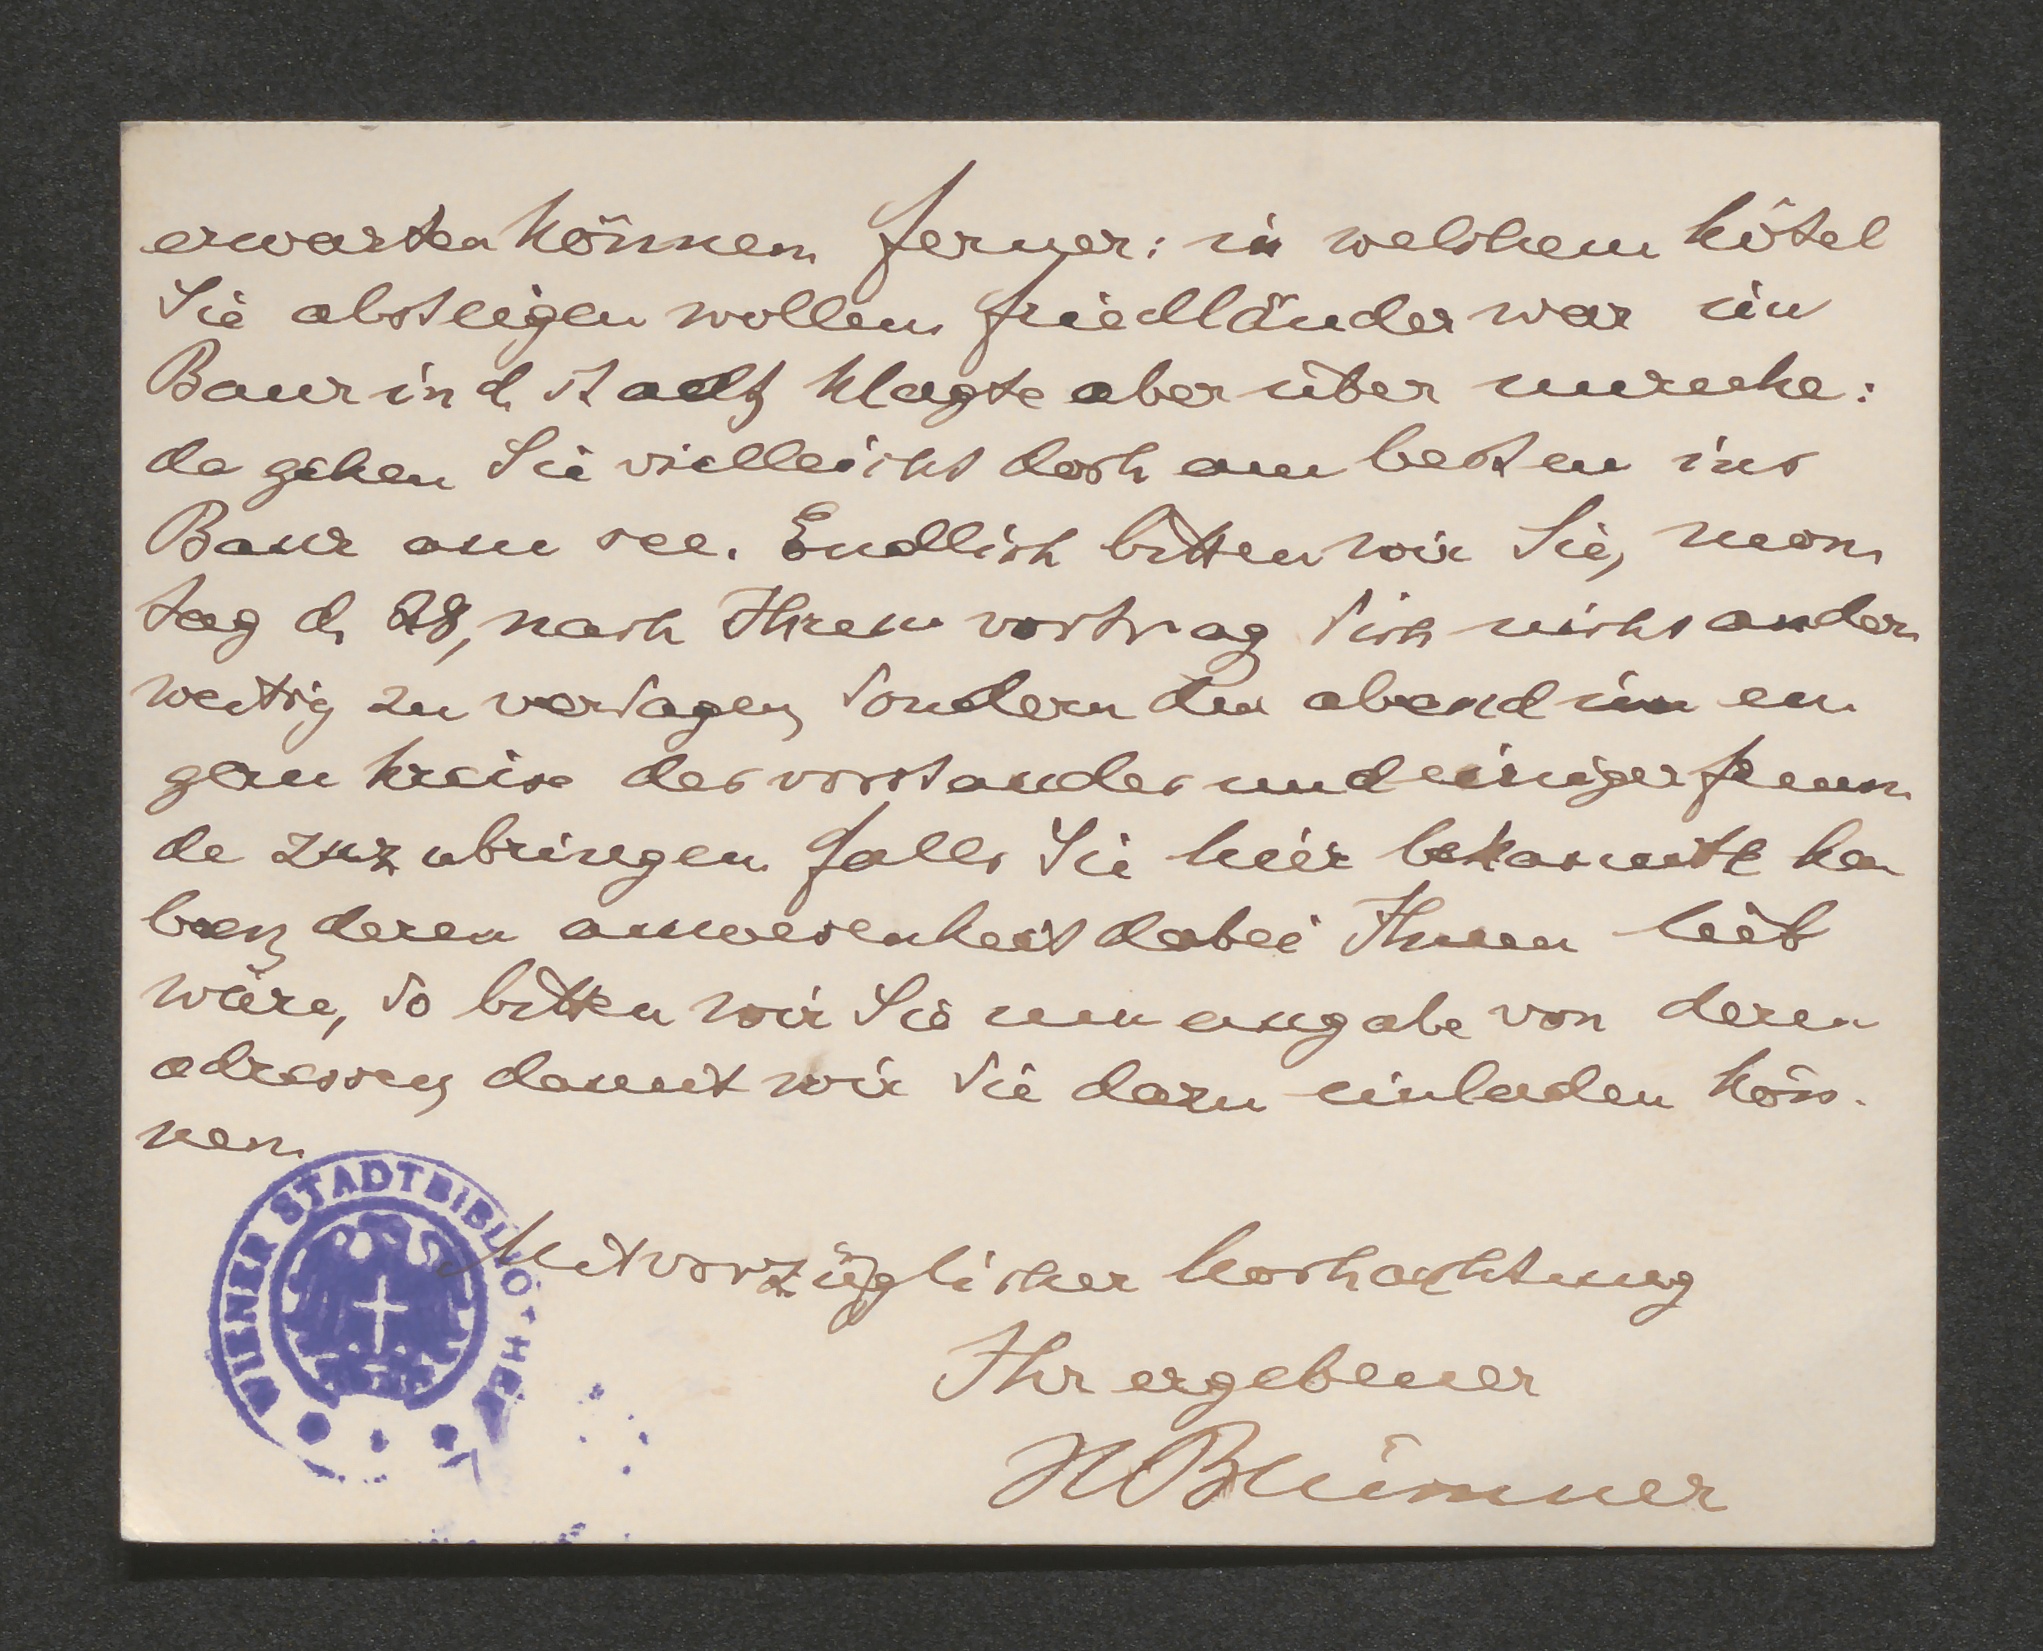 erwarten können. ferner: in welchem hôtel
Sie absteigen wollen. friedländer war im
Baur in d. stadt, klagte aber über unruhe:
da gehen Sie vielleicht doch am besten ins
Baur am see. Endlich bitten wir Sie, mon
tag d. 28, nach Ihrem vortrag Sich nicht ander
weitig zu versagen, sondern den abend im en
gern kreise des vorstandes und einiger freun
de zuzubringen. falls Sie hier bekannte ha
ben, deren anwesenheit dabei Ihnen lieb
wäre, so bitten wir Sie um angabe von deren
adressen, damit wir sie dazu einladen kön
nen.
Mit vorzüglicher hochachtung
Ihr ergebener
HBlümner
WIENER STADTBIBLIOTHEK